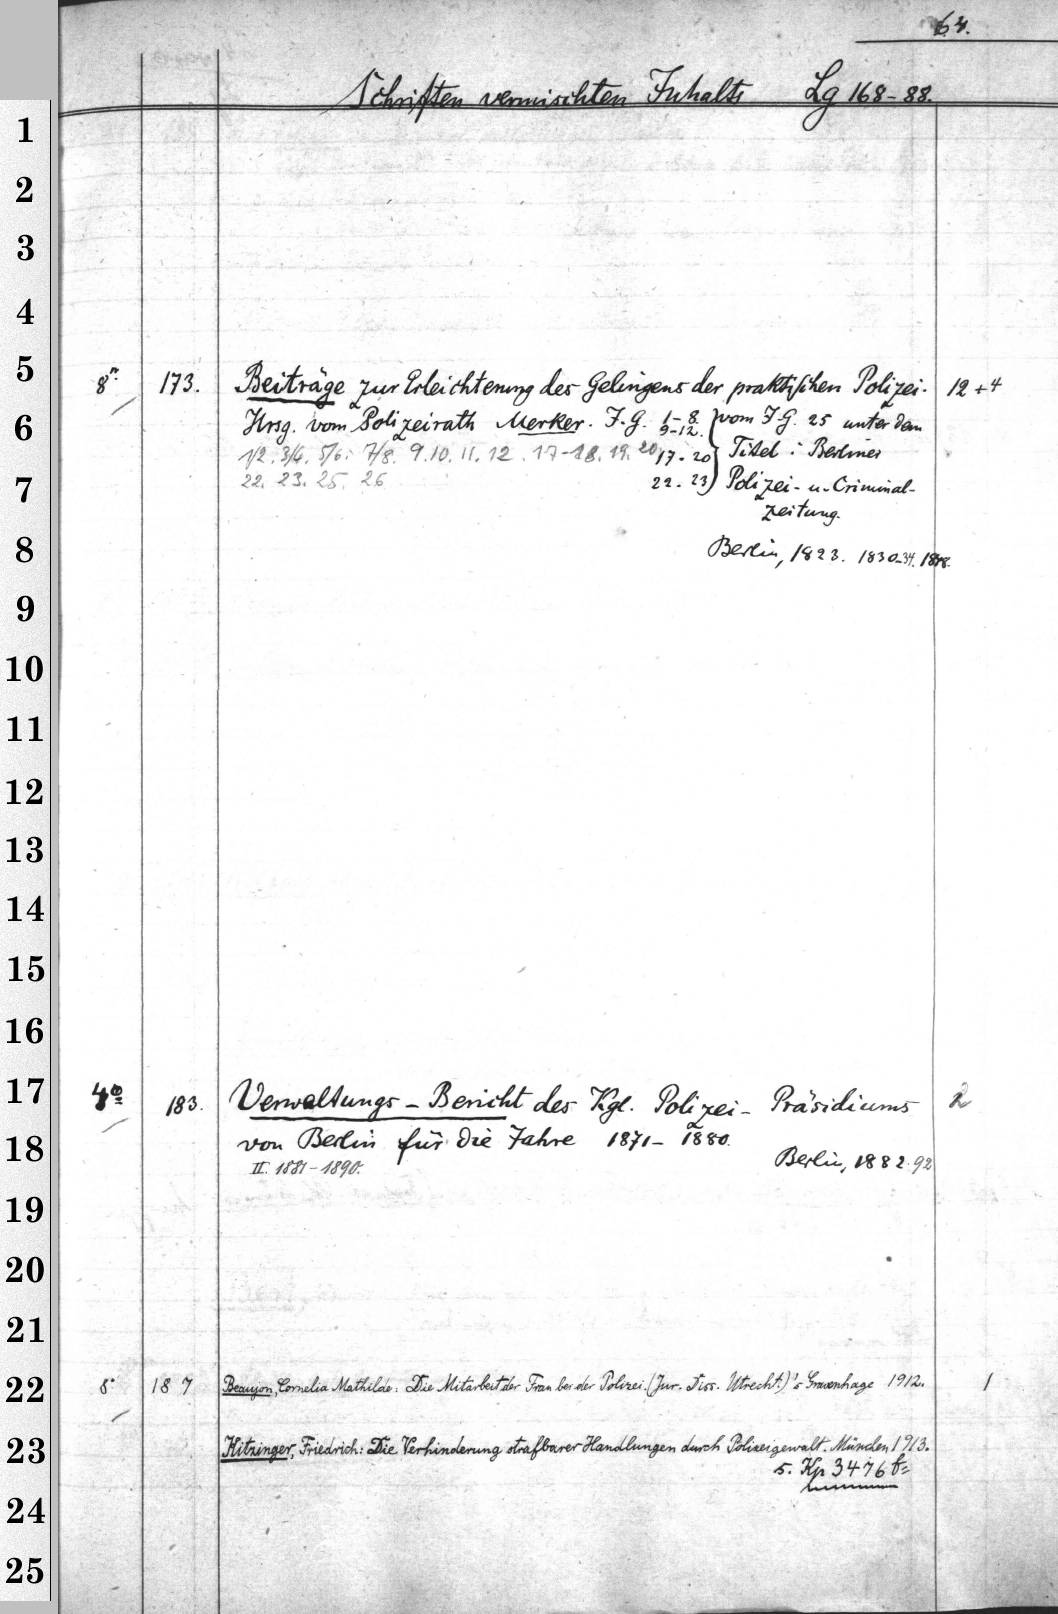 64.
Schriften vermischten Inhalts Lg 168-88.
1
2
3
4
5
8° 173. Beiträge zur Erleichterung des Gelingens der praktischen Polizei. 12 + 4
6
Hrsg. vom Polizeirath Merker. J.G. 1-8 vom J.G. 25 unter dem
9-12.
1/2. 3/4. 5/6. 7/8. 9. 10. 11. 12. 17-18. 19. 20 17-20 Titel: Berliner
7
22. 23. 25. 26 22-23 Polizei- u. Criminal-
zeitung.
8
Berlin, 1823. 1830-34.
9
10
11
12
13
14
15
16
17
4° 183. Verwaltungs-Bericht des Kgl. Polizei- Präsidiums 2
18
von Berlin für die Jahre 1871-1880.
II. 1881-1890. Berlin, 1882.92
19
20
21
22
8° 187 Beaujon, Cornelia Mathilde: Die Mitarbeit der Frau bei der Polizei. (Jur. Diss. Utrecht.) 's Gravenhage 1912. 1
23
Kitzinger, Friedrich: Die Verhinderung strafbarer Handlungen durch Polizeigewalt. München 1913.
s. Kp 3476
24
25